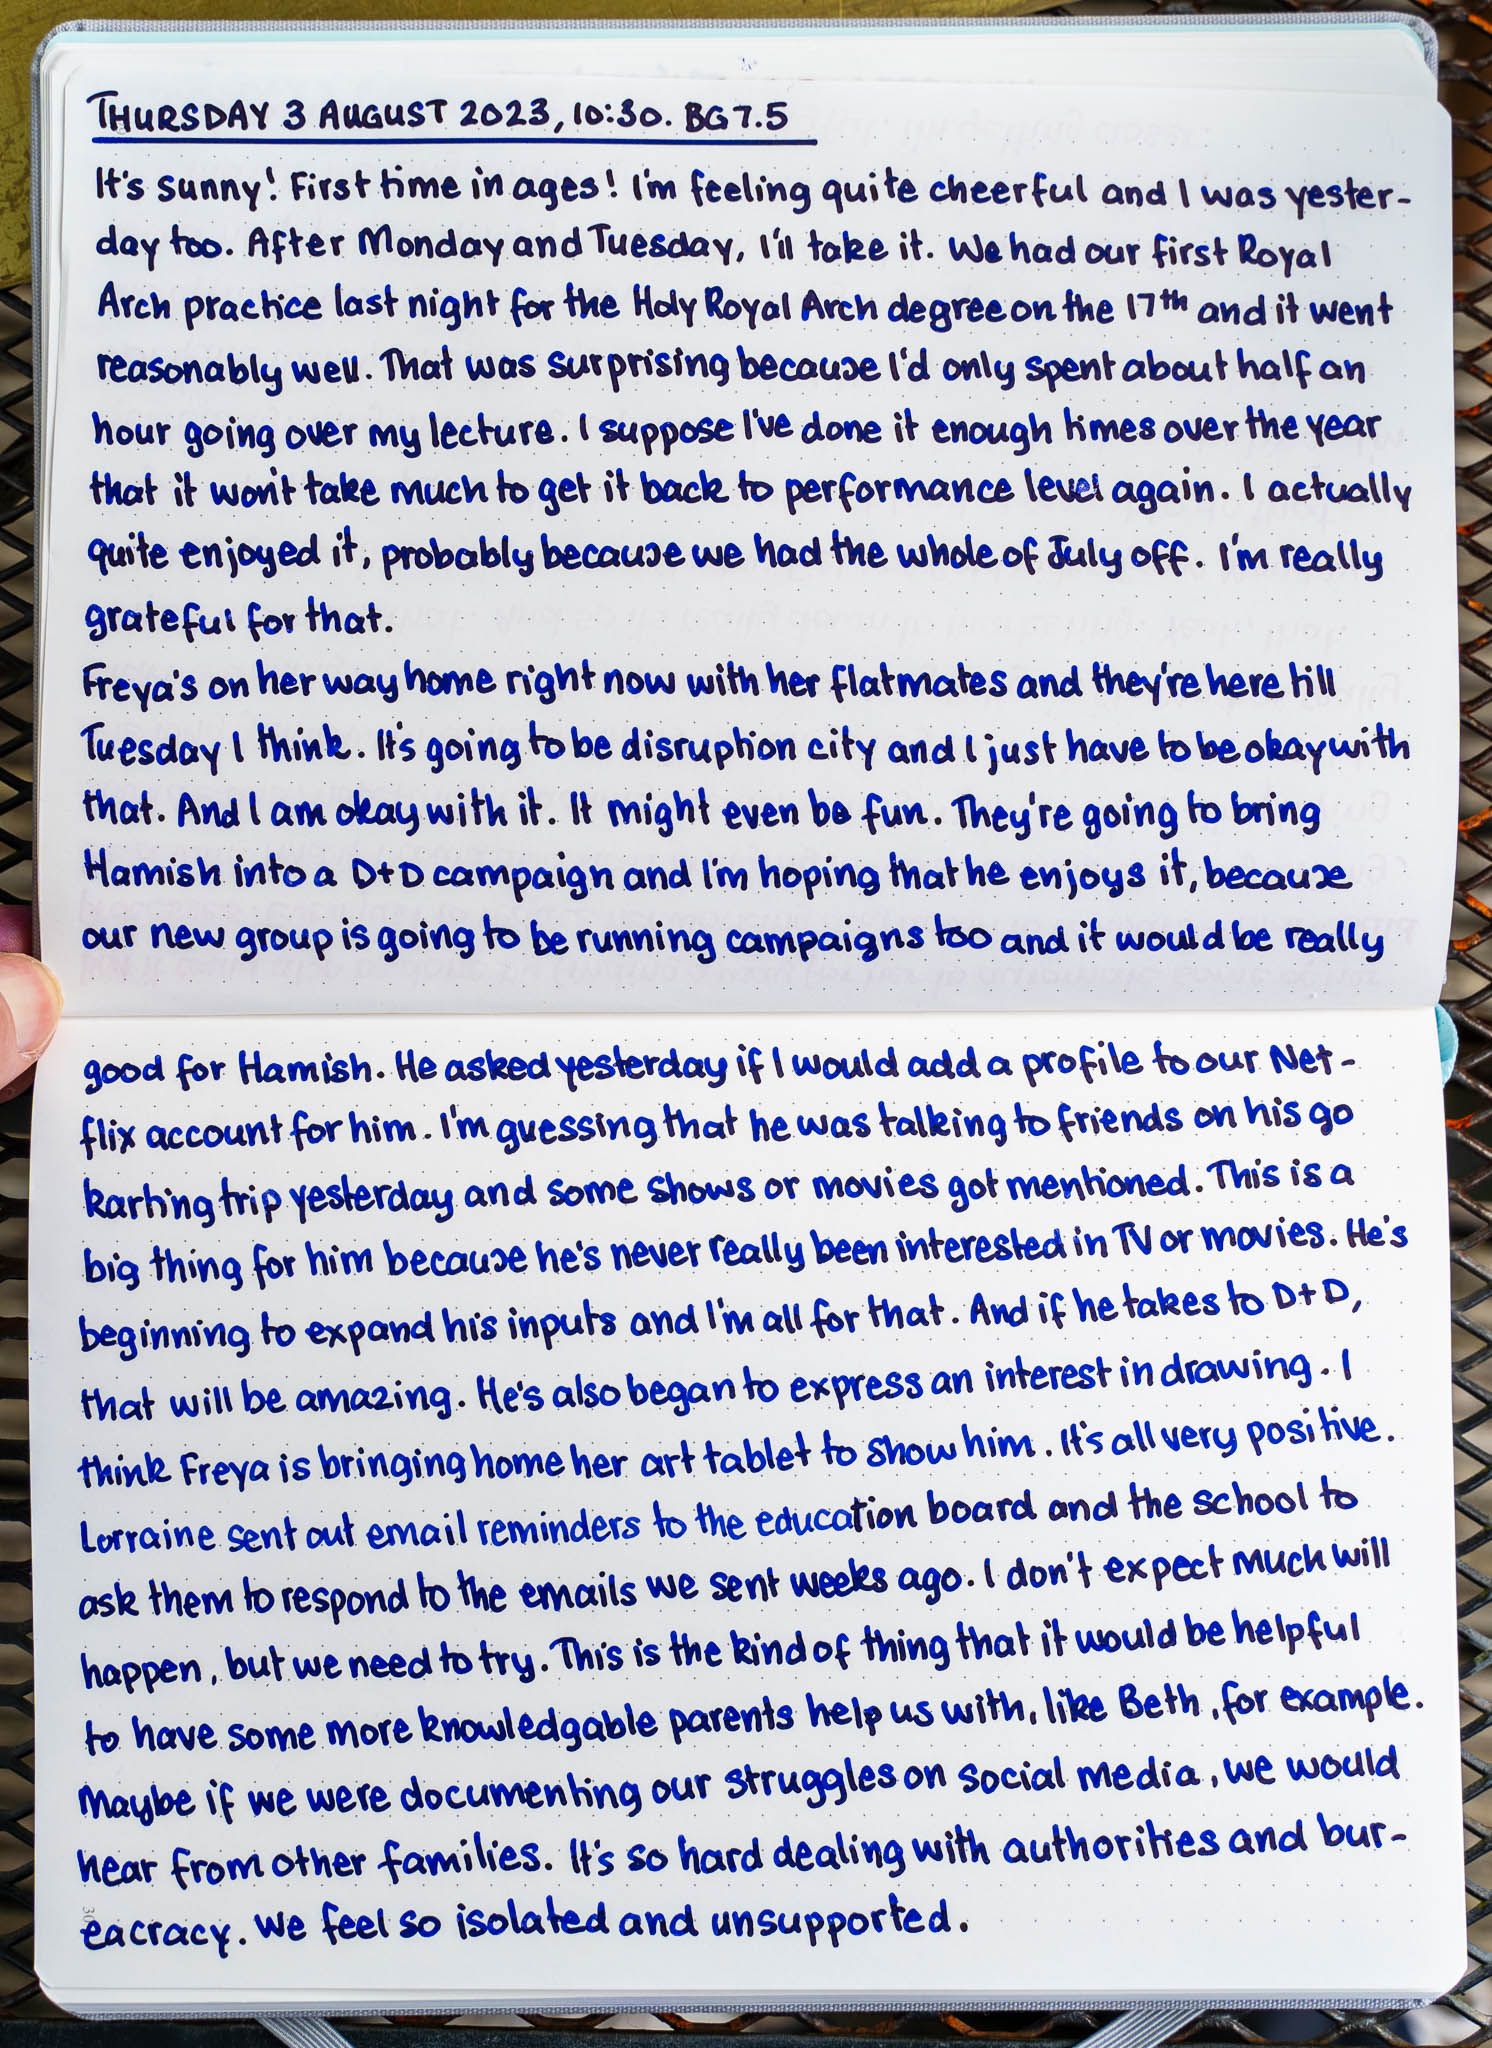 THURSDAY 3 AUGUST 2023, 10:30. BG 7.5
It's sunny! First time in ages! I'm feeling quite cheerful and I was yester-
day too. After Monday and Tuesday, I'll take it. We had our first Royal
Arch practice last night for the Holy Royal Arch degree on the 17th and it went
reasonably well. That was surprising because I'd only spent about half an
hour going over my lecture. I suppose I've done it enough times over the year
that it won't take much to get it back to performance level again. I actually
quite enjoyed it, probably because we had the whole of July off. I'm really
grateful for that.
Freya's on her way home right now with her flatmates and they're here till
Tuesday I think. It's going to be disruption city and I just have to be okay with
that. And I am okay with it. It might even be fun. They're going to bring
Hamish into a D+D campaign and I'm hoping that he enjoys it, because
our new group is going to be running campaigns too and it would be really
good for Hamish. He asked yesterday if I would add a profile to our Net-
flix account for him. I'm guessing that he was talking to friends on his go
karting trip yesterday and some shows or movies got mentioned. This is a
big thing for him because he's never really been interested in TV or movies. He's
beginning to expand his inputs and I'm all for that. And if he takes to D+D,
that will be amazing. He's also began to express an interest in drawing. I
think Freya is bringing home her art tablet to show him. It's all very positive.
Lorraine sent out email reminders to the education board and the school to
ask them to respond to the emails we sent weeks ago. I don't expect much will
happen, but we need to try. This is the kind of thing that it would be helpful
to have some more knowledgable parents help us with, like Beth, for example.
Maybe if we were documenting our struggles on social media, we would
hear from other families. It's so hard dealing with authorities and bur-
eacracy. We feel so isolated and unsupported.